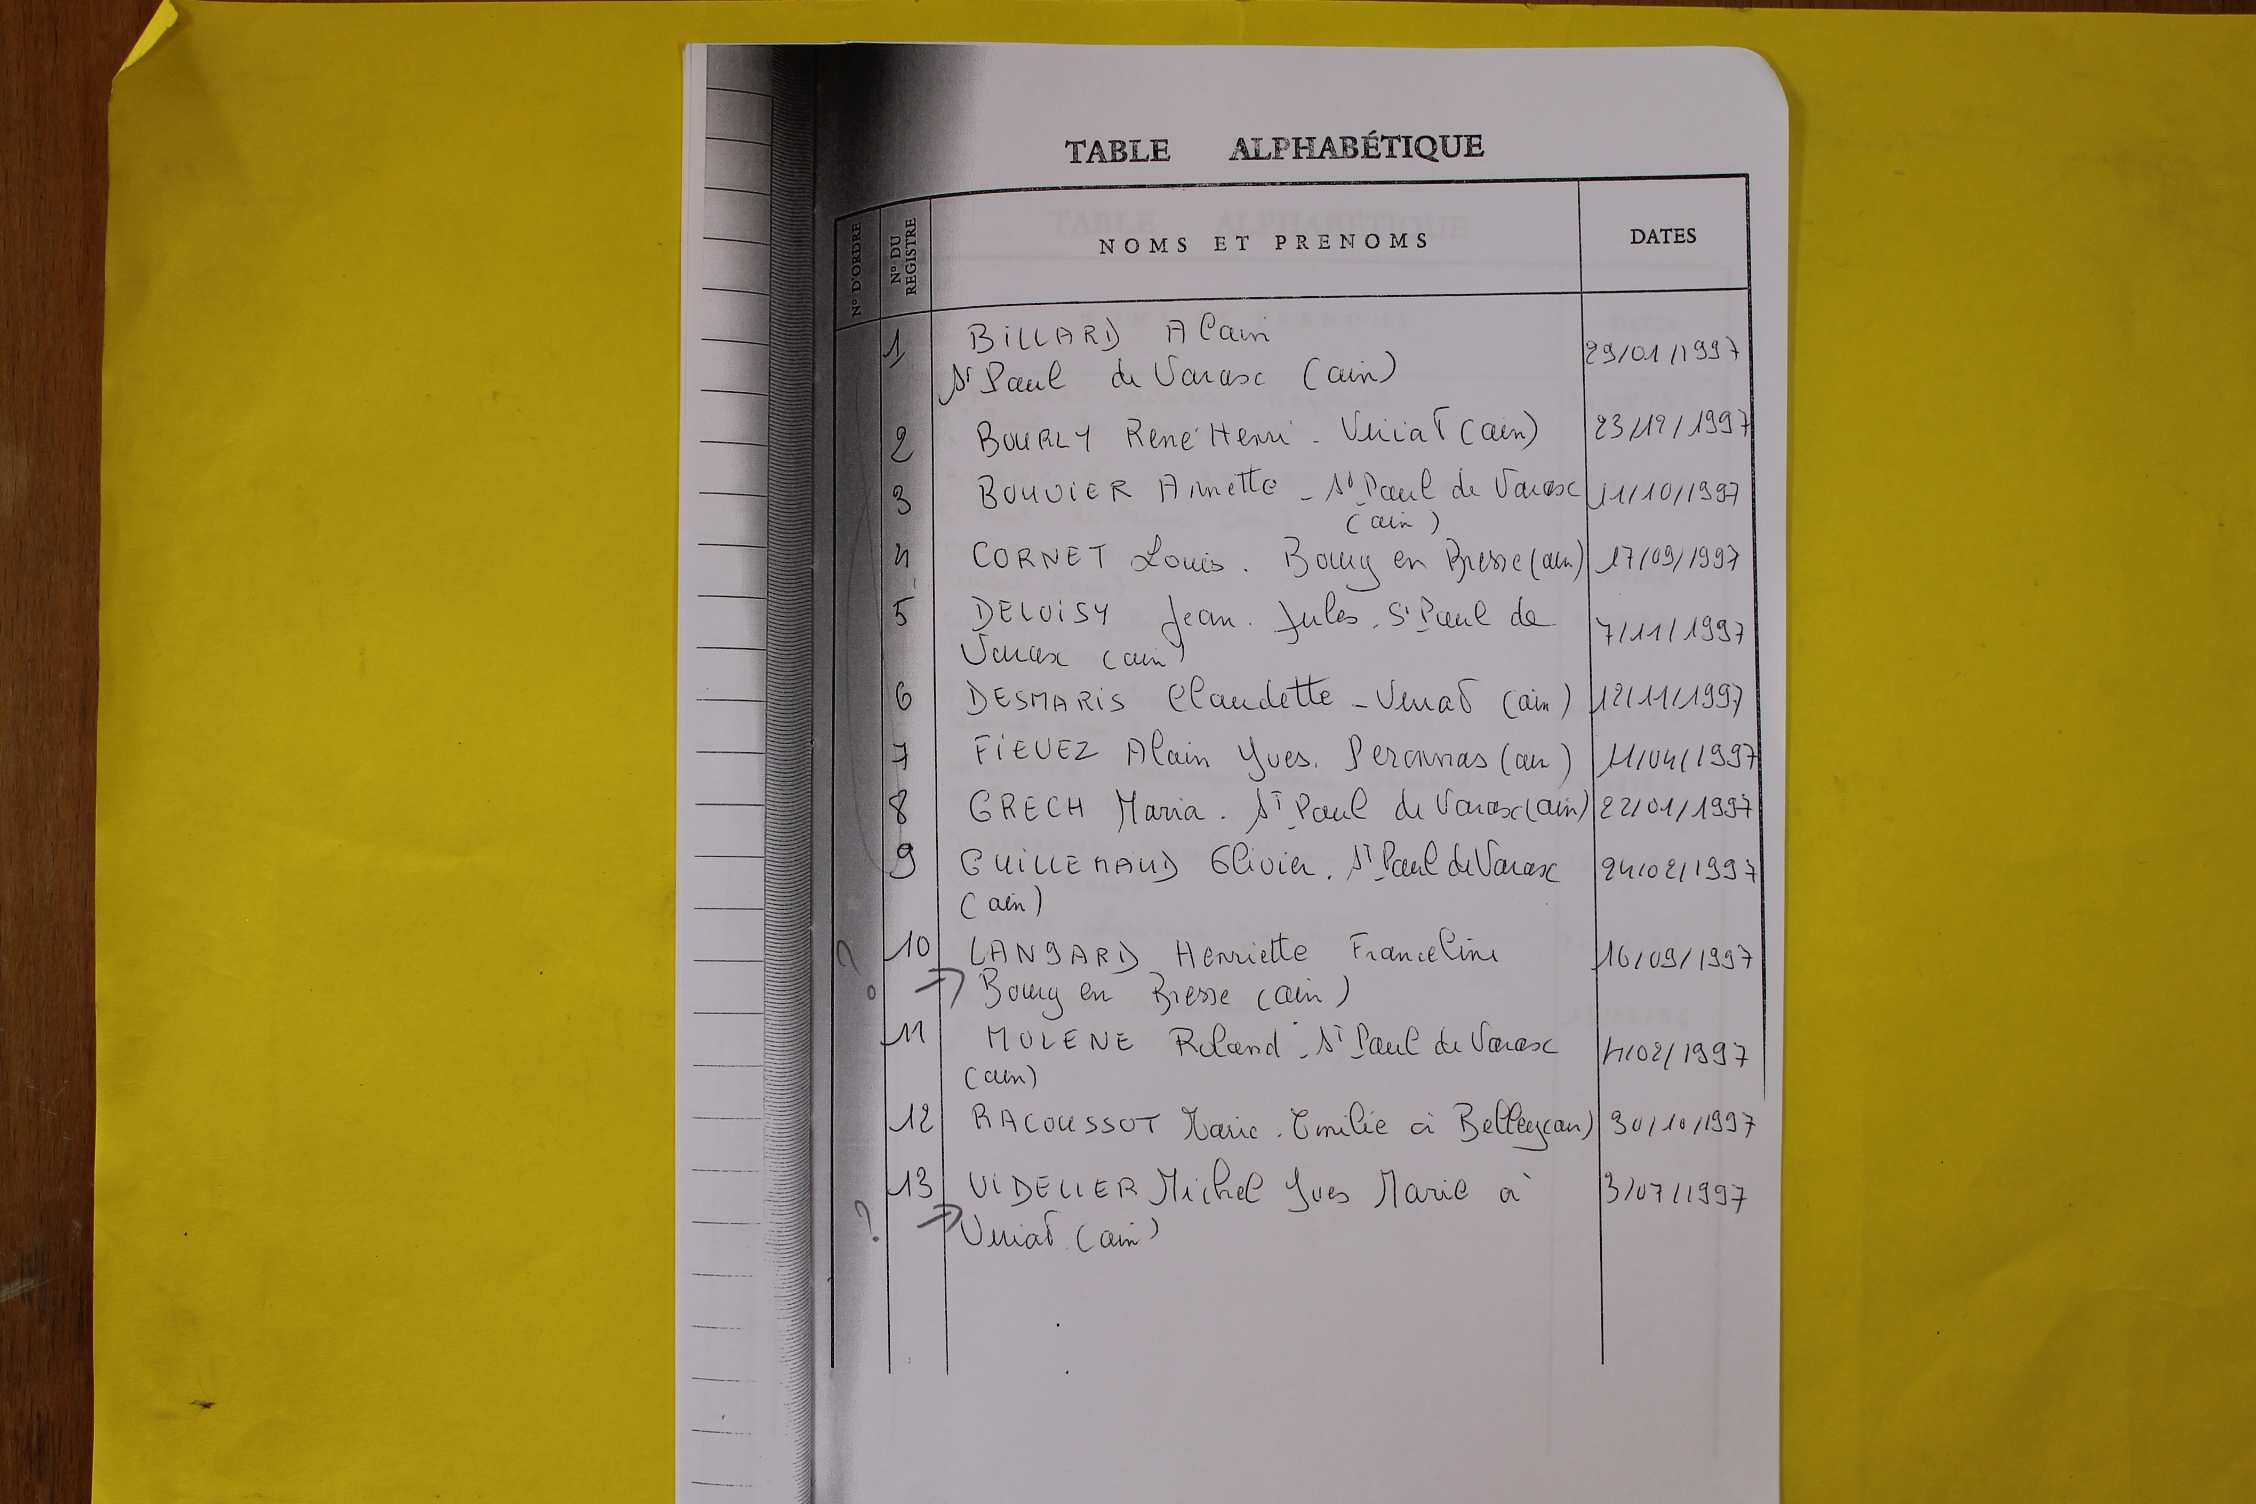 TABLE ALPHABÉTIQUE
N° D'ORDRE
N° DU REGISTRE
NOMS ET PRENOMS
DATES
1 BILLARD Alain 29/01/1997
St Paul de Varax (ain)
2 BOURLY René Henri - Viriat (ain) 23/12/1997
3 BOUVIER Annette - St Paul de Varax 11/10/1997
(ain)
4 CORNET Louis. Bourg en Bresse (ain) 17/09/1997
5 DELOISY Jean. Jules. St Paul de 7/11/1997
Varax (ain)
6 DESMARIS Claudette - Viriat (ain) 12/11/1997
7 FIEVEZ Alain Yves. Peronnas (ain) 11/04/1997
8 GRECH Maria. St Paul de Varax (ain) 22/01/1997
9 GUILLEMAUD Olivier. St Paul de Varax 24/02/1997
(ain)
? 10 LANGARD Henriette Franceline 16/09/1997
Bourg en Bresse (ain)
11 MOLENE Roland - St Paul de Varax 4/02/1997
(ain)
12 RACOUSSOT Marie. Emilie à Belley (ain) 30/10/1997
13 VIDELIER Michel Yves Marie à 3/07/1997
? Viriat (ain)